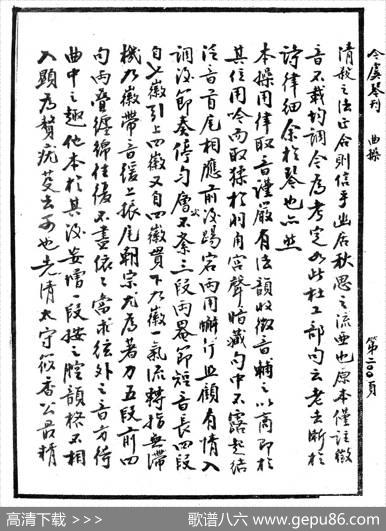 今虞琴刊 曲操 第二〇〇頁
清越之法正合則信乎幽居秋思之流亞也原本僅註徵
音不載均調今為考定如此杜工部句云老去漸於
詩律細余於琴也亦然
本操用律取音謹嚴有法韻收徵音輔之以商即於
其住用吟而取猱於羽角宮聲暗藏句中不露起結
泛音首尾相應前後踢宕兩用
且顧有情入
調後節奏停勻層次不紊三段兩
節短音長四段
自七徽引上四徽又自四徽貫下九徽一氣流轉指無滯
機九徽帶音緩上振尾朝宗尤為著力五段前四
句兩疊纏綿往復不盡依依當求弦外之音方得
曲中之趣他本於其後妄增一段按之腔韻格不相
入顯為贅疣芟去可也老清太守筱香公最精
高清下载 >>>
歌谱八六 www.gepu86.com